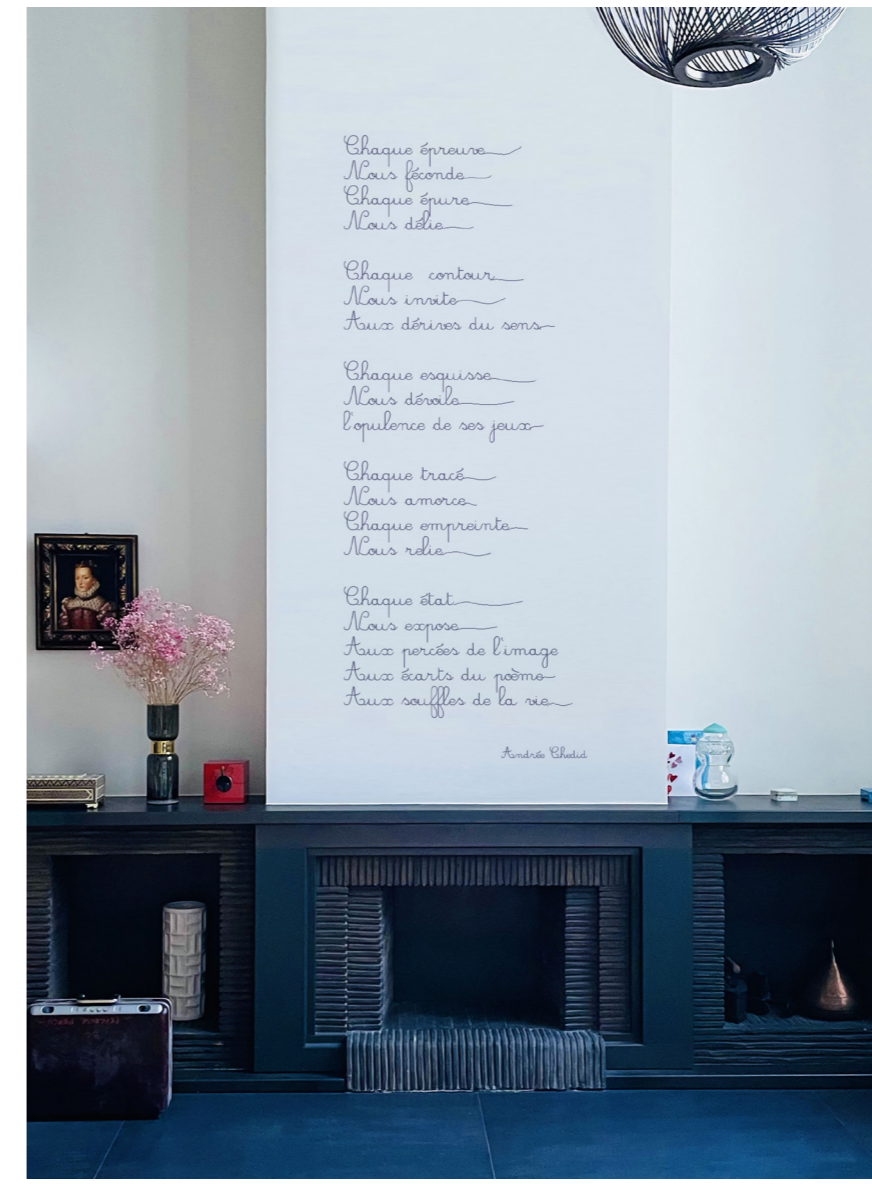 Chaque épreuve
Nous féconde
Chaque épure
Nous délie
Chaque contour
Nous invite
Aux dérives du sens
Chaque esquisse
Nous dévoile
l'opulence de ses jeux
Chaque tracé
Nous amorce
Chaque empreinte
Nous relie
Chaque état
Nous expose
Aux percées de l'image
Aux écarts du poème
Aux souffles de la vie
Andrée Chedid